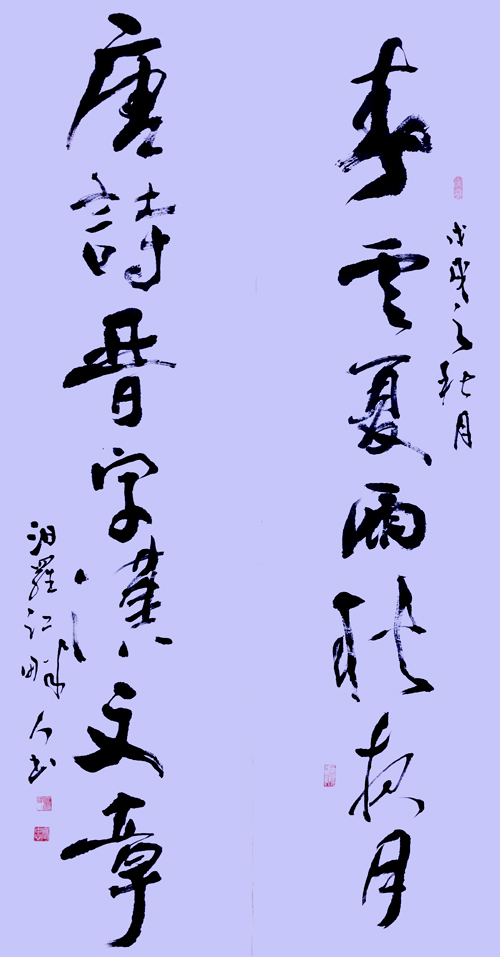 戊戌之秋月
春雲夏雨秋夜月
唐詩晉字漢文章
汨羅江畔人书